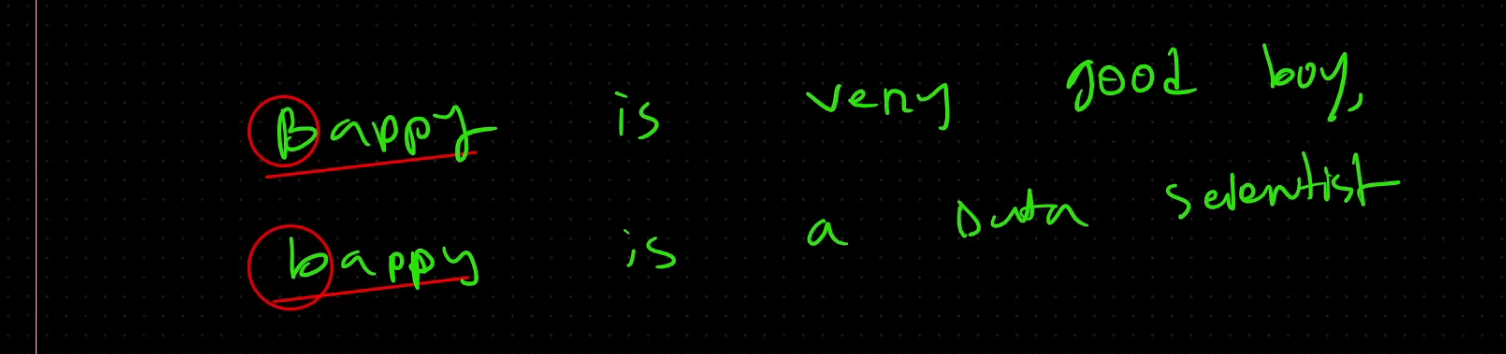 Bappy is very good boy,
bappy is a Data scientist